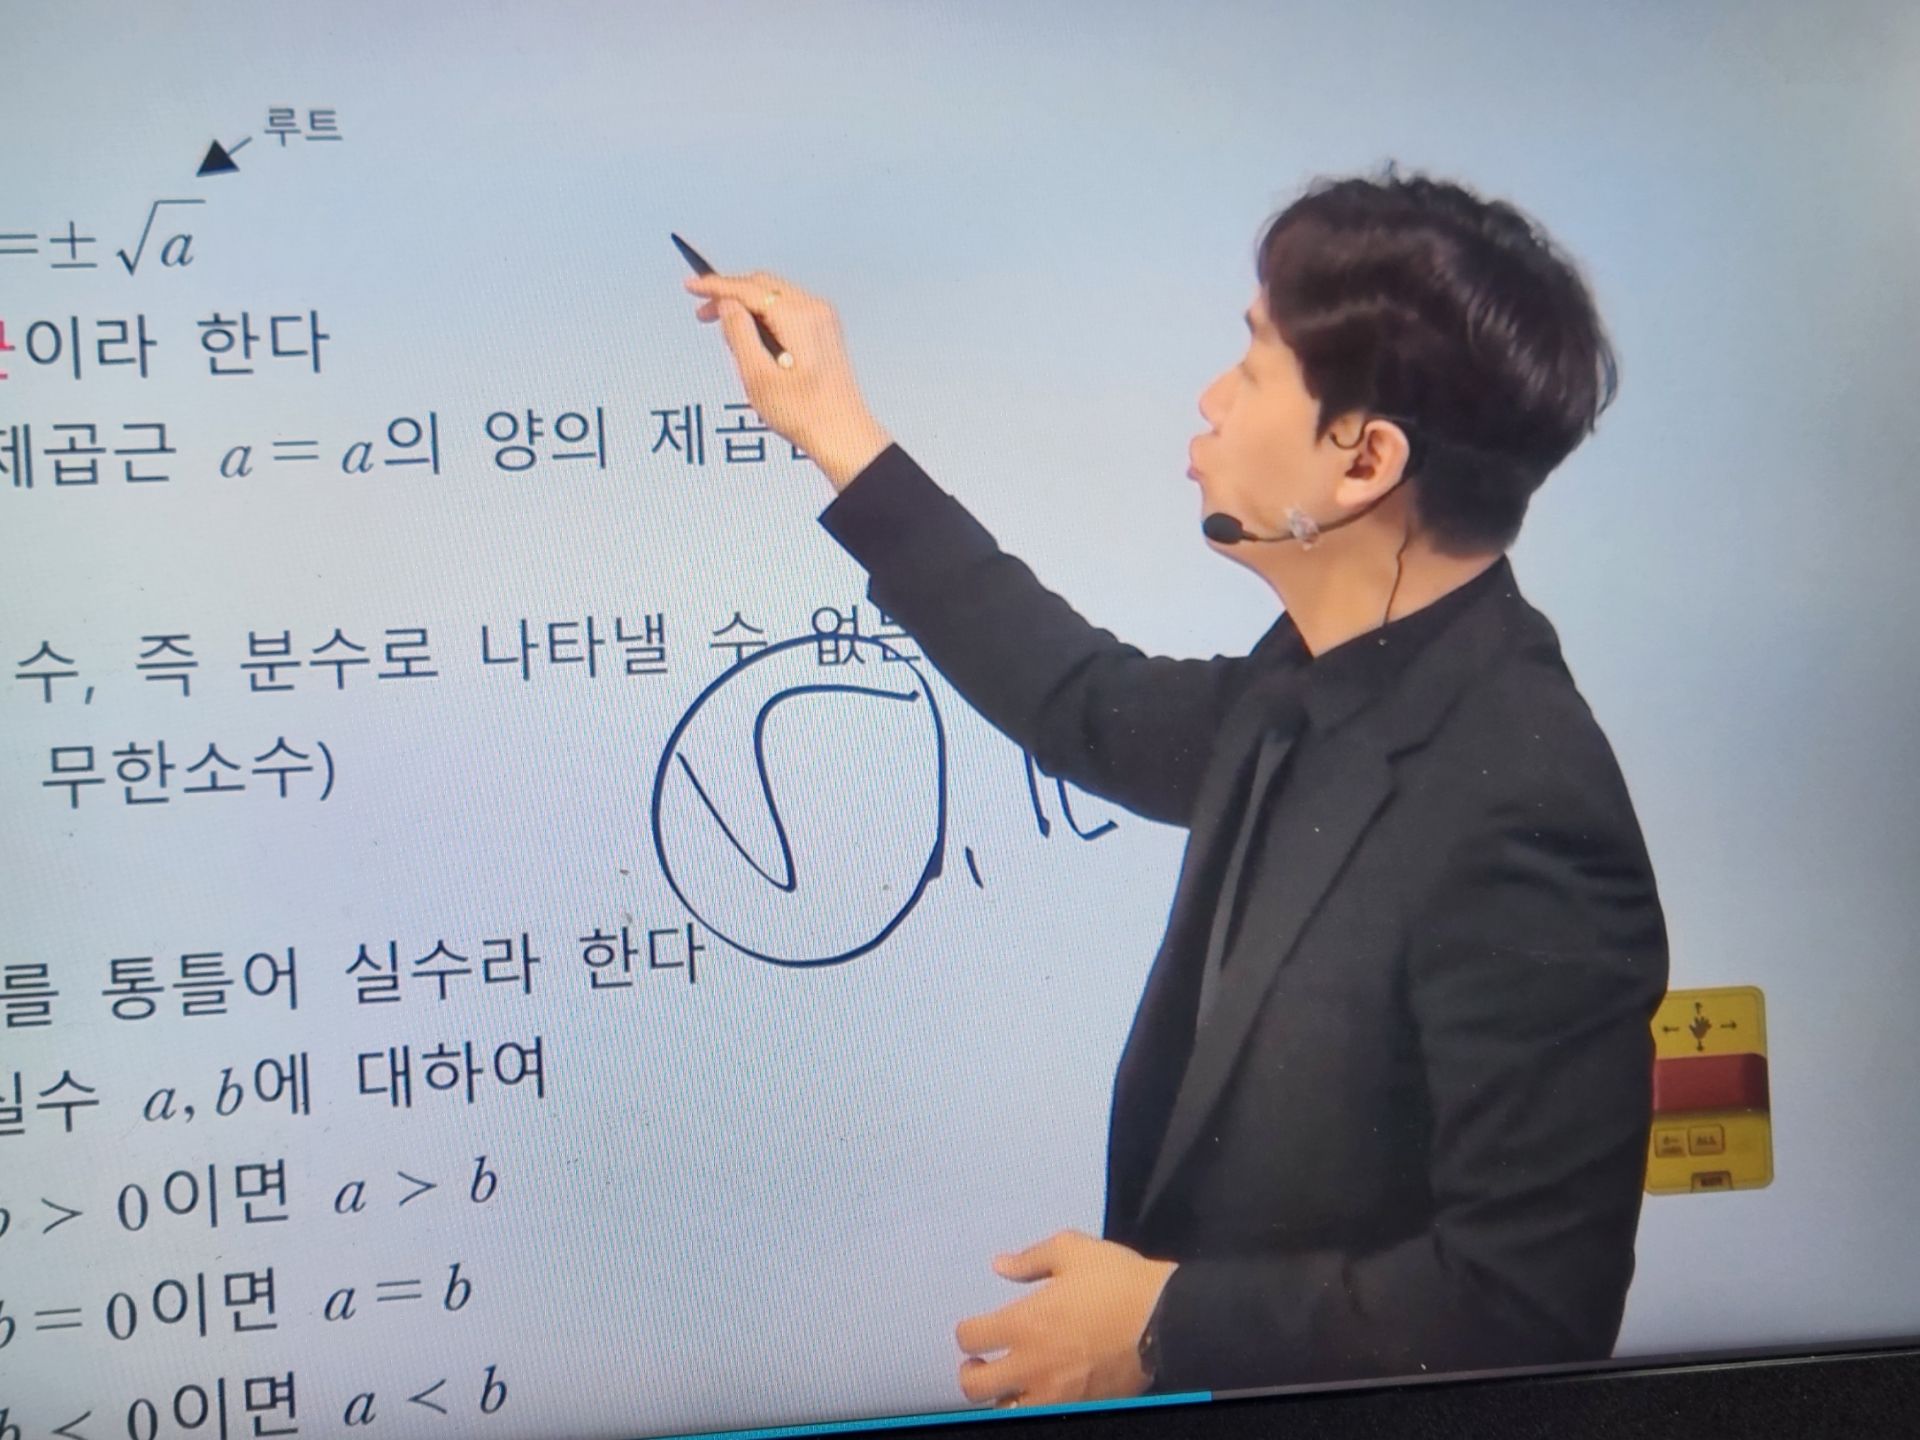 루트
=±√a
이라 한다
제곱근 a=a의 양의 제곱
수, 즉 분수로 나타낼 수 없는
무한소수)
√ , π
를 통틀어 실수라 한다
실수 a, b에 대하여
b > 0이면 a > b
b = 0이면 a = b
b < 0이면 a < b